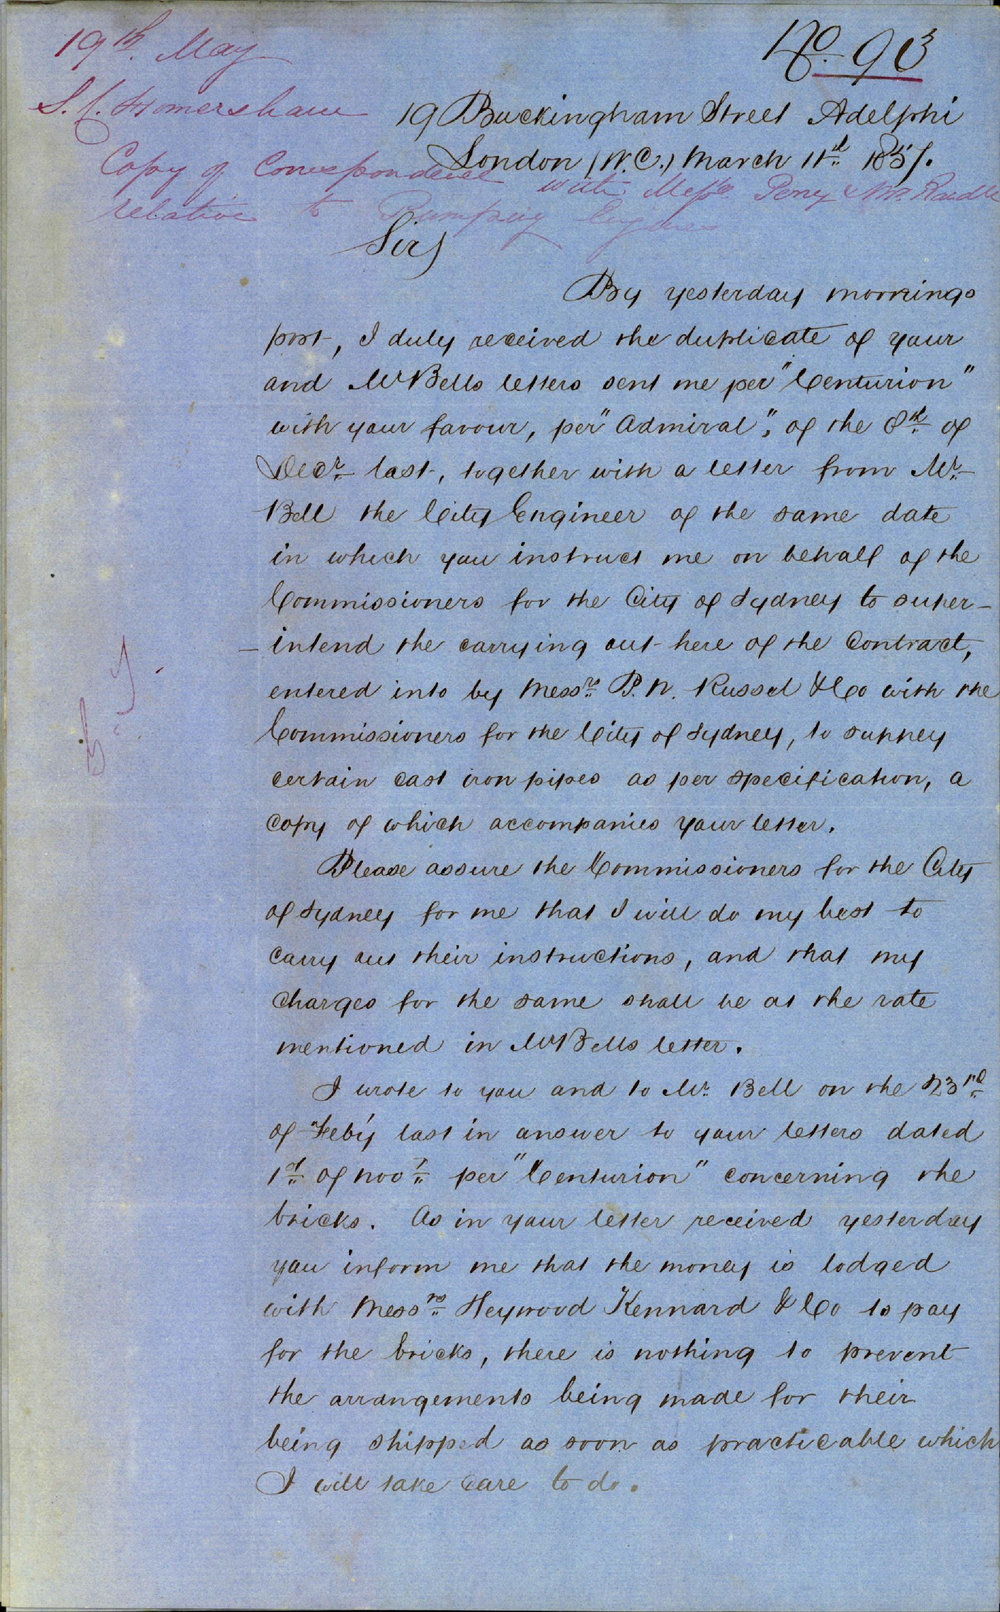 No. 93
19th. May
S. C. Homersham
19 Buckingham Street Adelphi
London (W.C.) March 11th. 1857.
Copy of Correspondence with Messrs. Perry &
relative to Pumping Engines
Sir,
By yesterday mornings
post, I duly received the duplicate of your
and Mr Bells letters sent me per "Centurion"
with your favour, per "Admiral", of the 8th. of
Decr. last, together with a letter from Mr.
Bell the City Engineer of the same date
in which you instruct me on behalf of the
Commissioners for the City of Sydney to super-
-intend the carrying out here of the Contract,
entered into by Messrs. P. N. Russel & Co with the
Commissioners for the City of Sydney, to supply
certain cast iron pipes as per specification, a
copy of which accompanies your letter.
Please assure the Commissioners for the City
of Sydney for me that I will do my best to
carry out their instructions, and that my
charges for the same shall be at the rate
mentioned in Mr Bells letter.
I wrote to you and to Mr. Bell on the 23rd.
of Feby last in answer to your letters dated
1st. of Novr. per "Centurion" concerning the
bricks. As in your letter received yesterday
you inform me that the money is lodged
with Messrs. Heywood Kennard & Co to pay
for the bricks, there is nothing to prevent
the arrangements being made for their
being shipped as soon as practicable which
I will take care to do.